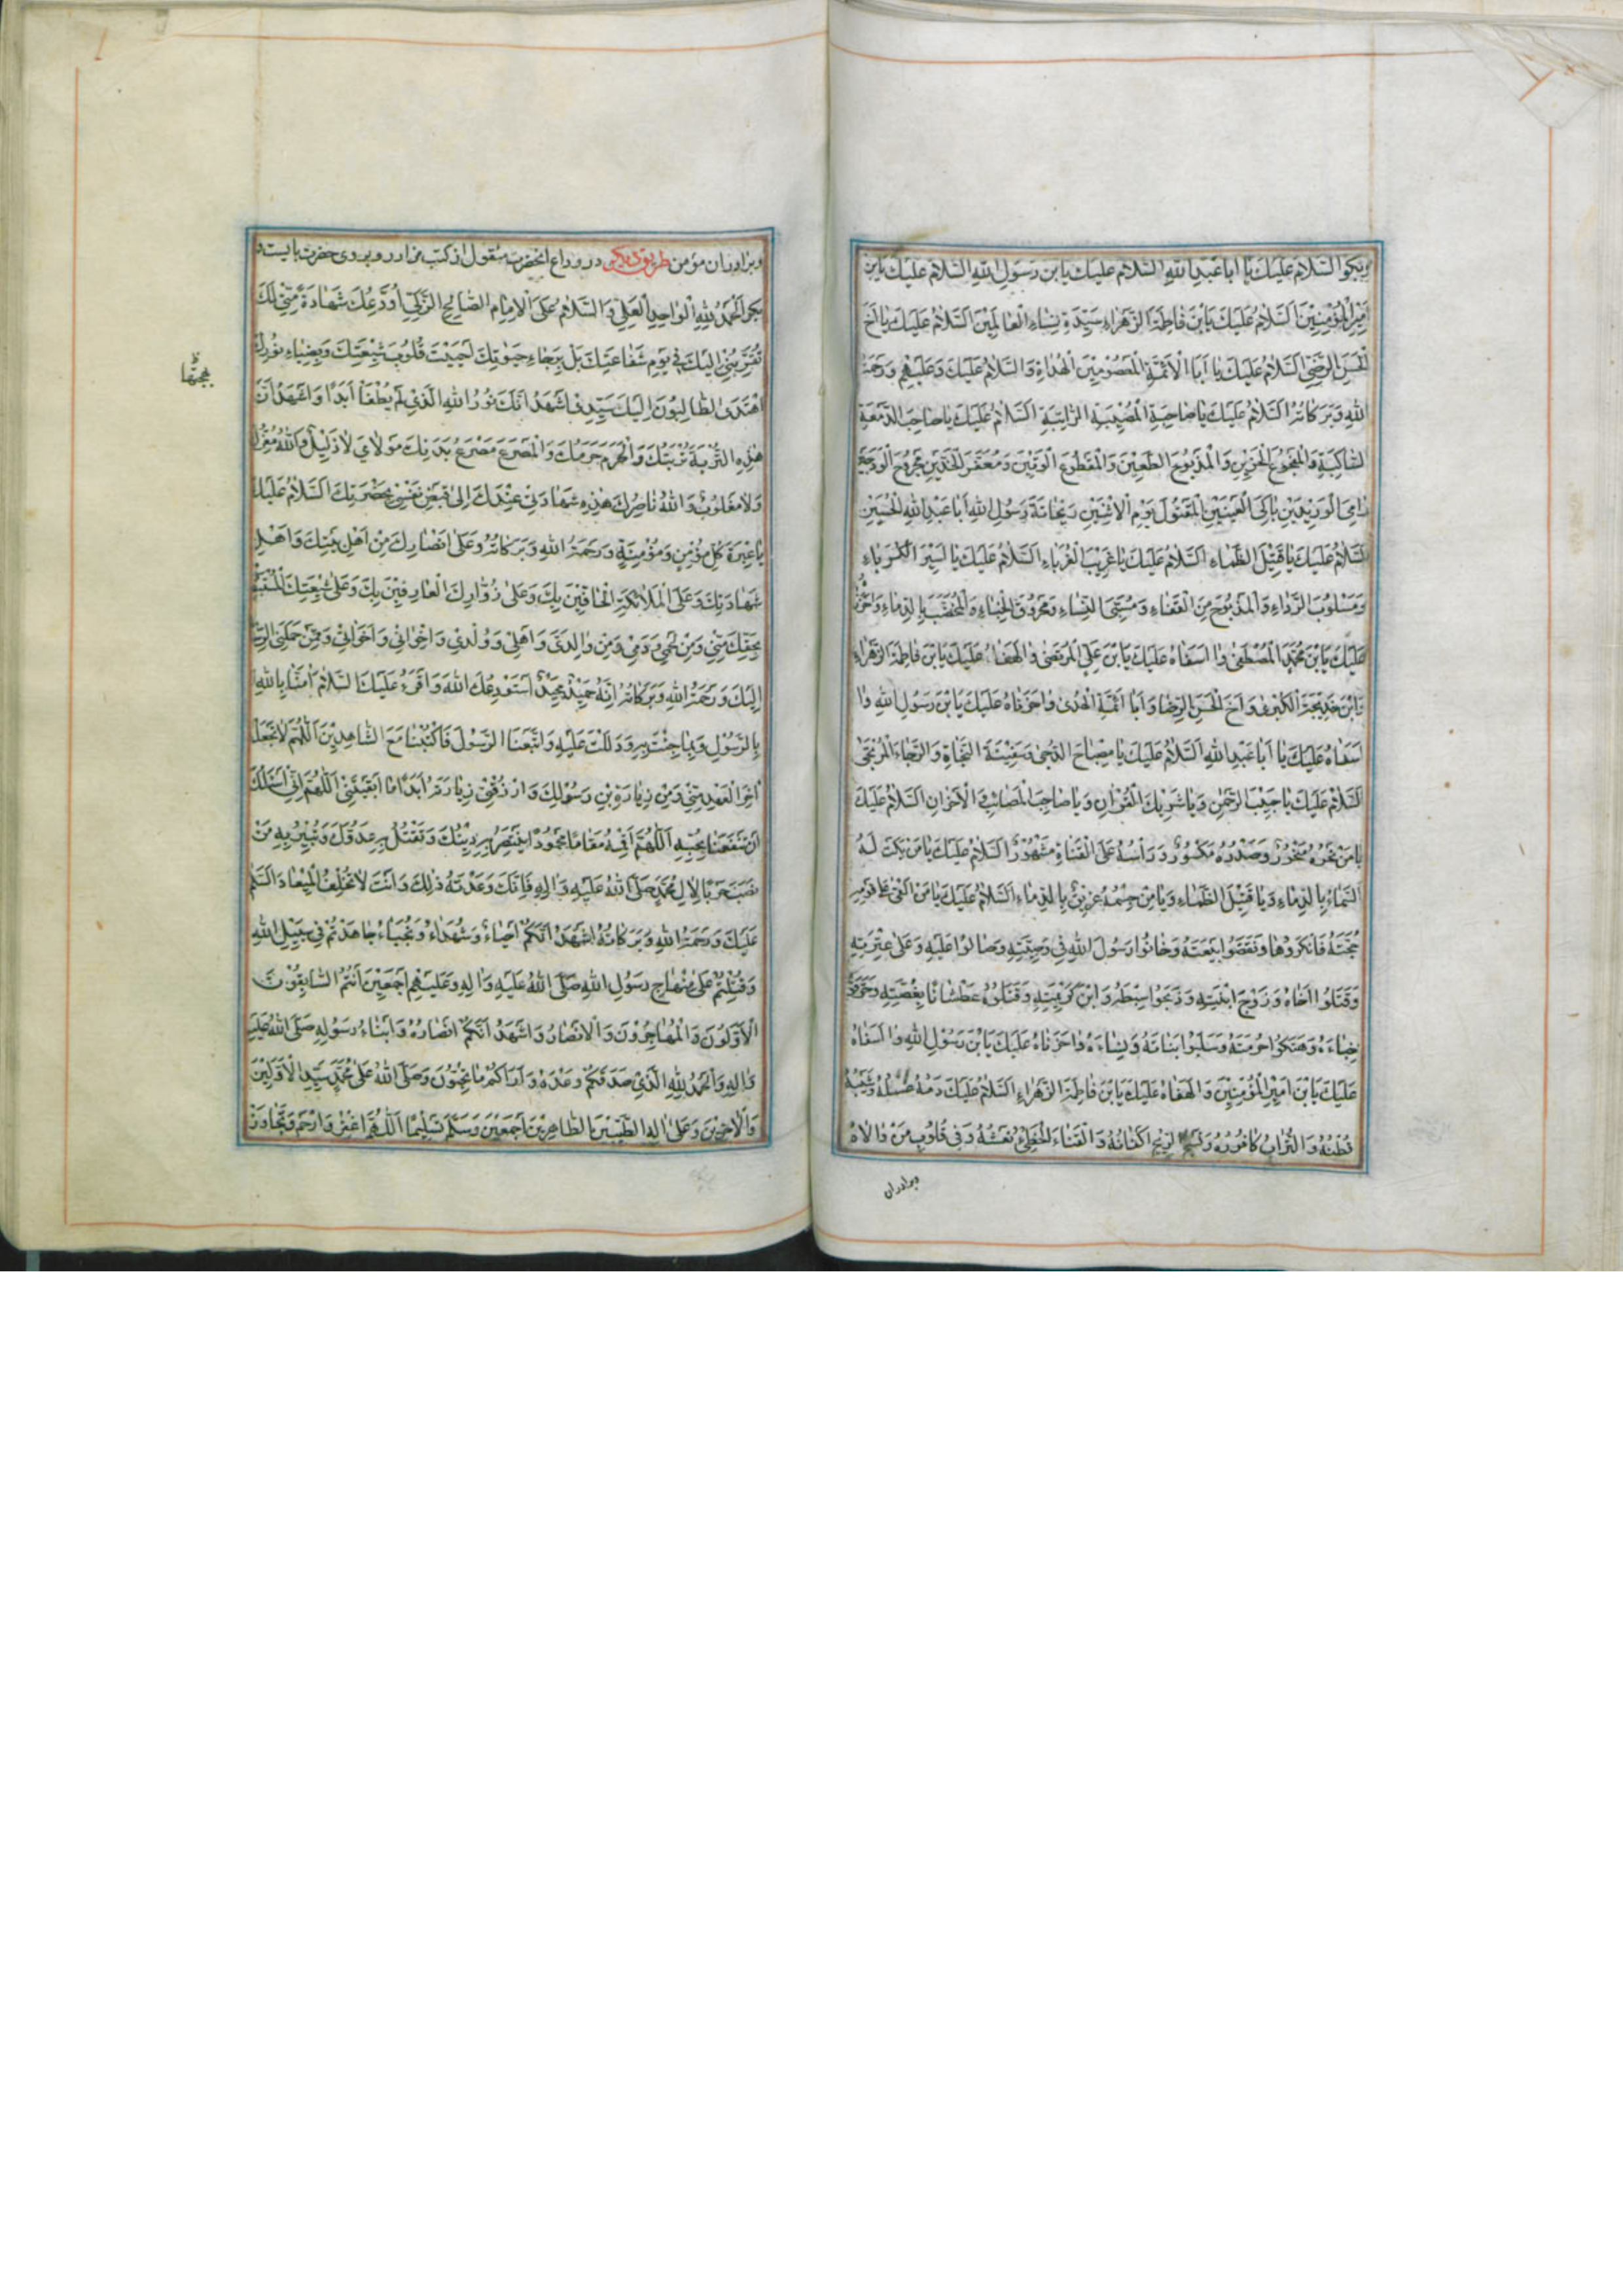 وبگو السَّلامُ عَلَيْكَ يا اَبا عَبْدِ اللّهِ السَّلامُ عَلَيْكَ يا بن رَسُولِ اللّهِ السَّلامُ عَلَيْكَ يا بن
اَمِيرِ الْمُؤْمِنِينَ اَلسَّلامُ عَلَيْكَ يَا بْنَ فاطِمَةَ الزَّهْراءِ سَيِّدَةِ نِساءِ الْعالَمِينَ اَلسَّلامُ عَلَيْكَ يا اَخَ
الْحَسَنِ الرَّضِيِّ اَلسَّلامُ عَلَيْكَ يا اَبَا الْاَئِمَّةِ الْمَعْصُومِينَ الْهُداةِ وَالسَّلامُ عَلَيْكَ وَعَلَيْهِمْ وَرَحْمَةُ
اللّهِ وَبَرَكاتُهُ اَلسَّلامُ عَلَيْكَ يا صاحِبَ الْمُصِيبَةِ الرّاتِبَةِ اَلسَّلامُ عَلَيْكَ يا صاحِبَ الدَّمْعَةِ
السّاكِبَةِ وَالْمَذْبُوحِ الطَّعِينِ وَالْمَقْطُوعِ الْوَتِينِ وَمُعَفَّرِ الْخَدَّيْنِ مَجْرُوحِ الْوَدَجَيْنِ
دامِيَ الْوَرِيدَيْنِ باكِيَ الْعَيْنَيْنِ الْمَقْتُولَ يَوْمَ الْاِثْنَيْنِ رَيْحانَةَ رَسُولِ اللّهِ اَبا عَبْدِ اللّهِ الْحُسَيْنِ
اَلسَّلامُ عَلَيْكَ يا قَتِيلَ الظَّماءِ اَلسَّلامُ عَلَيْكَ يا غَرِيبَ الْغُرَباءِ اَلسَّلامُ عَلَيْكَ يا اَسِيرَ الْكُرَباءِ
وَمَسْلُوبَ الرِّداءِ وَالْمَذْبُوحَ مِنَ الْقَفاءِ وَمَحْرُوقَ الْخِباءِ وَالْمُخَضَّبَ بِالدِّماءِ
عَلَيْكَ يَا بْنَ مُحَمَّدٍ الْمُصْطَفى وا اَسَفاهُ عَلَيْكَ يَا بْنَ عَلِيٍّ الْمُرْتَضى والَهْفاهُ عَلَيْكَ يَا بْنَ فاطِمَةَ الزَّهْراءِ
يَا بْنَ خَدِيجَةَ الْكُبْرى وَاَخَ الْحَسَنِ الرِّضا وَاَبا اَئِمَّةِ الْهُدى واحَزَناهُ عَلَيْكَ يَا بْنَ رَسُولِ اللّهِ وا
اَسَفاهُ عَلَيْكَ يا اَبا عَبْدِ اللّهِ اَلسَّلامُ عَلَيْكَ يا مِصْباحَ الدُّجى وَسَفِينَةَ النَّجاةِ وَالرَّجاءَ الْمُرْتَجى
اَلسَّلامُ عَلَيْكَ يا حَبِيبَ الرَّحْمنِ وَيا شَرِيكَ الْقُرْانِ وَيا صاحِبَ الْمَصائِبِ الْاَحْزانِ اَلسَّلامُ عَلَيْكَ
يا مَنْ نَحْرُهُ مَنْحُورٌ وَصَدْرُهُ مَكْسُورٌ وَرَأْسُهُ عَلَى الْقَناةِ مَشْهُورٌ اَلسَّلامُ عَلَيْكَ يا مَنْ بَكَتْ لَهُ
السَّماءُ بِالدِّماءِ وَيا قَتِيلَ الظَّماءِ وَيا مَنْ جِسْمُهُ بِالدِّماءِ اَلسَّلامُ عَلَيْكَ يا مَنْ اَلْقى عَلى قَوْمِهِ
حُجَّتَهُ فَاَنْكَرُوها وَنَقَضُوا بَيْعَتَهُ وَخانُوا رَسُولَ اللّهِ فِي وَصِيَّتِهِ وَصالُوا عَلَيْهِ وَعَلى عِتْرَتِهِ
وَقَتَلُوا اَخاهُ وَزَوْجَ ابْنَتِهِ وَذَبَحُوا سِبْطَهُ وَابْنَ كَرِيمَتِهِ وَقَتَلُوهُ عَطْشانًا بِغُصَّتِهِ
خِباءَهُ وَهَتَكُوا حُرْمَتَهُ وَسَلَبُوا بَناتَهُ وَنِساءَهُ واحَزَناهُ عَلَيْكَ يَا بْنَ رَسُولِ اللّهِ وا اَسَفاهُ
عَلَيْكَ يَا بْنَ اَمِيرِ الْمُؤْمِنِينَ والَهْفاهُ عَلَيْكَ يَا بْنَ فاطِمَةَ الزَّهْراءِ اَلسَّلامُ عَلَيْكَ دَمُهُ غُسْلُهُ وَشَيْبُهُ
قُطْنُهُ وَالتُّرابُ كافُورُهُ وَنَسْجُ الرِّيحِ اَكْفانُهُ وَالْقَناءُ الْخَطِّيُّ نَعْشُهُ وَفِي قُلُوبِ مَنْ والاهُ
وبرادران
وبرادران مؤمن طریق دیگر در وداع انحضرت منقول از کتب مزار رو بروی حضرت بایست و
بگو اَلْحَمْدُ لِلّهِ الْواحِدِ الْعَلِيِّ وَالسَّلامُ عَلَى الْاِمامِ الصّالِحِ الزَّكِيِّ اُوَدِّعُكَ شَهادَةً مِنّي لَكَ
تُقَرِّبُنِي اِلَيْكَ فِي يَوْمِ شَفاعَتِكَ بَلْ بِرَجاءِ حَيوتِكَ حَيِيَتْ قُلُوبُ شِيعَتِكَ وَبِضِياءِ نُورِكَ
اهْتَدَى الطّالِبُونَ اِلَيْكَ سَيِّدِي اَشْهَدُ اَنَّكَ نُورُ اللّهِ الَّذِي لَمْ يُطْفَأْ اَبَدًا وَاَشْهَدُ اَنَّ
هذِهِ التُّرْبَةَ تُرْبَتُكَ وَالْحَرَمَ حَرَمُكَ وَالْمَصْرَعَ مَصْرَعُ بَدَنِكَ مَوْلايَ لا ذَلِيلٌ وَاللّهُ مُعِزُّكَ
وَلا مَغْلُوبٌ وَاللّهُ ناصِرُكَ هذِهِ شَهادَتِي عِنْدَكَ اِلى قَبْضِ نَفْسِي بِحَضْرَتِكَ اَلسَّلامُ عَلَيْكَ
يا عَبْرَةَ كُلِّ مُؤْمِنٍ وَمُؤْمِنَةٍ وَرَحْمَةُ اللّهِ وَبَرَكاتُهُ وَعَلى اَنْصارِكَ مِنْ اَهْلِ بَيْتِكَ وَاَهْلِ
شَهادَتِكَ وَعَلَى الْمَلائِكَةِ الْحافِّينَ بِكَ وَعَلى زُوّارِكَ الْعارِفِينَ بِكَ وَعَلى شِيعَتِكَ
بِحَقِّكَ مِنِّي وَمِنْ لَحْمِي وَدَمِي وَمِنْ والِدَيَّ وَاَهْلِي وَوُلْدِي وَاِخْوانِي وَاَخَواتِي وَمِمَّنْ حَمَّلَنِي الرِّسالَةَ
اِلَيْكَ وَرَحْمَةُ اللّهِ وَبَرَكاتُهُ اِنَّهُ حَمِيدٌ مَجِيدٌ اَسْتَوْدِعُكَ اللّهَ وَاَقْرَءُ عَلَيْكَ السَّلامَ امَنّا بِاللّهِ
بِالرَّسُولِ وَبِما جِئْتَ بِهِ وَدَلَلْتَ عَلَيْهِ وَاتَّبَعْنَا الرَّسُولَ فَاكْتُبْنا مَعَ الشّاهِدِينَ اَللّهُمَّ لا تَجْعَلْهُ
اخِرَ الْعَهْدِ مِنّي وَمِنْ زِيارَةِ بْنِ رَسُولِكَ وَارْزُقْنِي زِيارَتَهُ اَبَدًا ما اَبْقَيْتَنِي اَللّهُمَّ اِنِّي اَسْئَلُكَ
اَنْ تَنْفَعَنا بِحُبِّهِ اَللّهُمَّ اَقِمْهُ مَقامًا مَحْمُودًا لِيَنْتَصِرَ بِهِ دِينُكَ وَتَقْتُلُ بِهِ عَدُوَّكَ وَتُبِيرُ بِهِ مَنْ
نَصَبَ حَرْبًا لِالِ مُحَمَّدٍ صَلَّى اللّهُ عَلَيْهِ وَالِهِ فَاِنَّكَ وَعَدْتَهُ ذلِكَ وَاَنْتَ لا تُخْلِفُ الْمِيعادَ اَلسَّلامُ
عَلَيْكَ وَرَحْمَةُ اللّهِ وَبَرَكاتُهُ اَشْهَدُ اَنَّكُمْ اَحْياءٌ وَشُهَداءُ وَنُجَباءُ جاهَدْتُمْ فِي سَبِيلِ اللّهِ
وَقُتِلْتُمْ عَلى مِنْهاجِ رَسُولِ اللّهِ صَلَّى اللّهُ عَلَيْهِ وَالِهِ وَعَلَيْهِمْ اَجْمَعِينَ اَنْتُمُ السّابِقُونَ
الْاَوَّلُونَ وَالْمُهاجِرُونَ وَالْاَنْصارُ وَاَشْهَدُ اَنَّكُمْ اَنْصارُهُ وَاَبْناءُ رَسُولِهِ صَلَّى اللّهُ عَلَيْهِ
وَالِهِ وَالْحَمْدُ لِلّهِ الَّذِي صَدَقَكُمْ وَعْدَهُ وَاَراكُمْ ما تُحِبُّونَ وَصَلَّى اللّهُ عَلى مُحَمَّدٍ سَيِّدِ الْاَوَّلِينَ
وَالْاخِرِينَ وَعَلى الِهِ الطَّيِّبِينَ الطّاهِرِينَ اَجْمَعِينَ وَسَلَّمَ تَسْلِيمًا اَللّهُمَّ اغْفِرْ وَارْحَمْ وَتَجاوَزْ